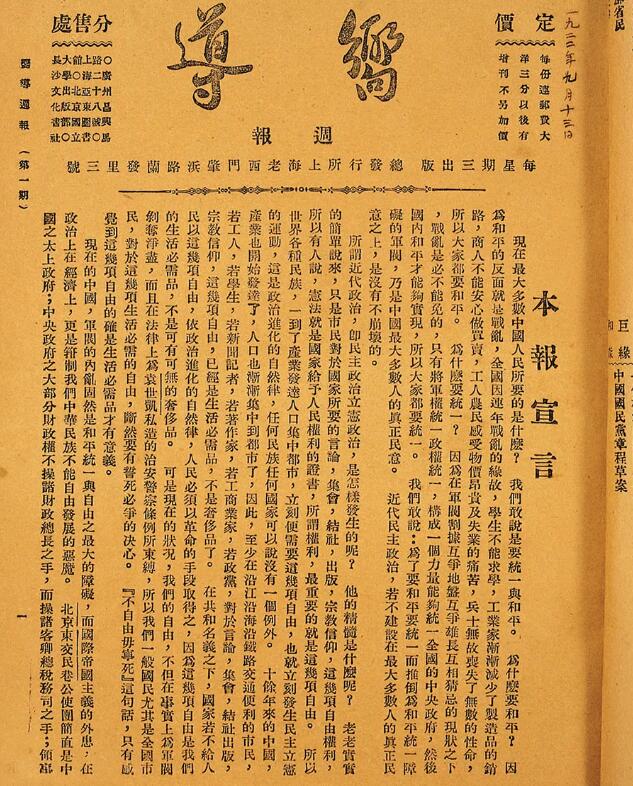 嚮導
週報
定價
每份連郵費大
洋三分以後有
增刊不另加價
分售處
○廣州昌興馬
路二十八號○
上海亞東圖書
館○北京國立
大學出版部○
長沙文化書社
每星期三出版 總發行所上海老西門肇浜路蘭發里三號
嚮導週報(第一期)
一九二二年九月十三日
本報宣言
現在最大多數中國人民所要的是什麼? 我們敢說是要統一與和平。 爲什麼要和平? 因
爲和平的反面就是戰亂,全國因連年戰亂的緣故,學生不能求學,工業家漸漸減少了製造品的銷
路,商人不能安心做買賣,工人農民感受物價昂貴及失業的痛苦,兵士無故喪失了無數的性命,
所以大家都要和平。 爲什麼要統一? 因爲在軍閥割據互爭地盤互爭雄長互相猜忌的現狀之下
,戰亂是必不能免的,只有將軍權統一政權統一,構成一個力量能夠統一全國的中央政府,然後
國內和平才能夠實現,所以大家都要統一。 我們敢說:爲了要和平要統一而推倒爲和平統一障
礙的軍閥,乃是中國最大多數人的真正民意。 近代民主政治,若不建設在最大多數人的真正民
意之上,是沒有不崩壞的。
所謂近代政治,卽民主政治立憲政治,是怎樣發生的呢? 他的精髓是什麼呢? 老老實實
的簡單說來,只是市民對於國家所要的言論,集會,結社,出版,宗教信仰,這幾項自由權利,
所以有人說,憲法就是國家給予人民權利的證書,所謂權利,最重要的就是這幾項自由。 所以
世界各種民族,一到了產業發達人口集中都市,立刻便需要這幾項自由,也就立刻發生民主立憲
的運動,這是政治進化的自然律,任何民族任何國家可以說沒有一個例外。 十餘年來的中國,
產業也開始發達了,人口也漸漸集中到都市了,因此,至少在沿江沿海沿鐵路交通便利的市民,
若工人,若學生,若新聞記者,若著作家,若工商業家,若政黨,對於言論,集會,結社,出版,
宗教信仰,這幾項自由,已經是生活必需品,不是奢侈品了。 在共和名義之下,國家若不給人
民以這幾項自由,依政治進化的自然律,人民必須以革命的手段取得之,因爲這幾項自由是我們
的生活必需品,不是可有可無的奢侈品。 可是現在的狀況,我們的自由,不但在事實上爲軍閥
剝奪淨盡,而且在法律上爲袁世凱私造的治安警察條例所束縛,所以我們一般國民尤其是全國市
民,對於這幾項生活必需的自由,斷然要有誓死必爭的決心。 『不自由毋寧死』這句話,只有感
覺到這幾項自由的確是生活必需品才有意義。
現在的中國,軍閥的內亂固然是和平統一與自由之最大的障礙,而國際帝國主義的外患,在
政治上在經濟上,更是箝制我們中華民族不能自由發展的惡魔。 北京東交民巷公使團簡直是中
國之太上政府;中央政府之大部分財政權不操諸財政總長之手,而操諸客卿總稅務司之手;領事
一
中國國民黨章程草案